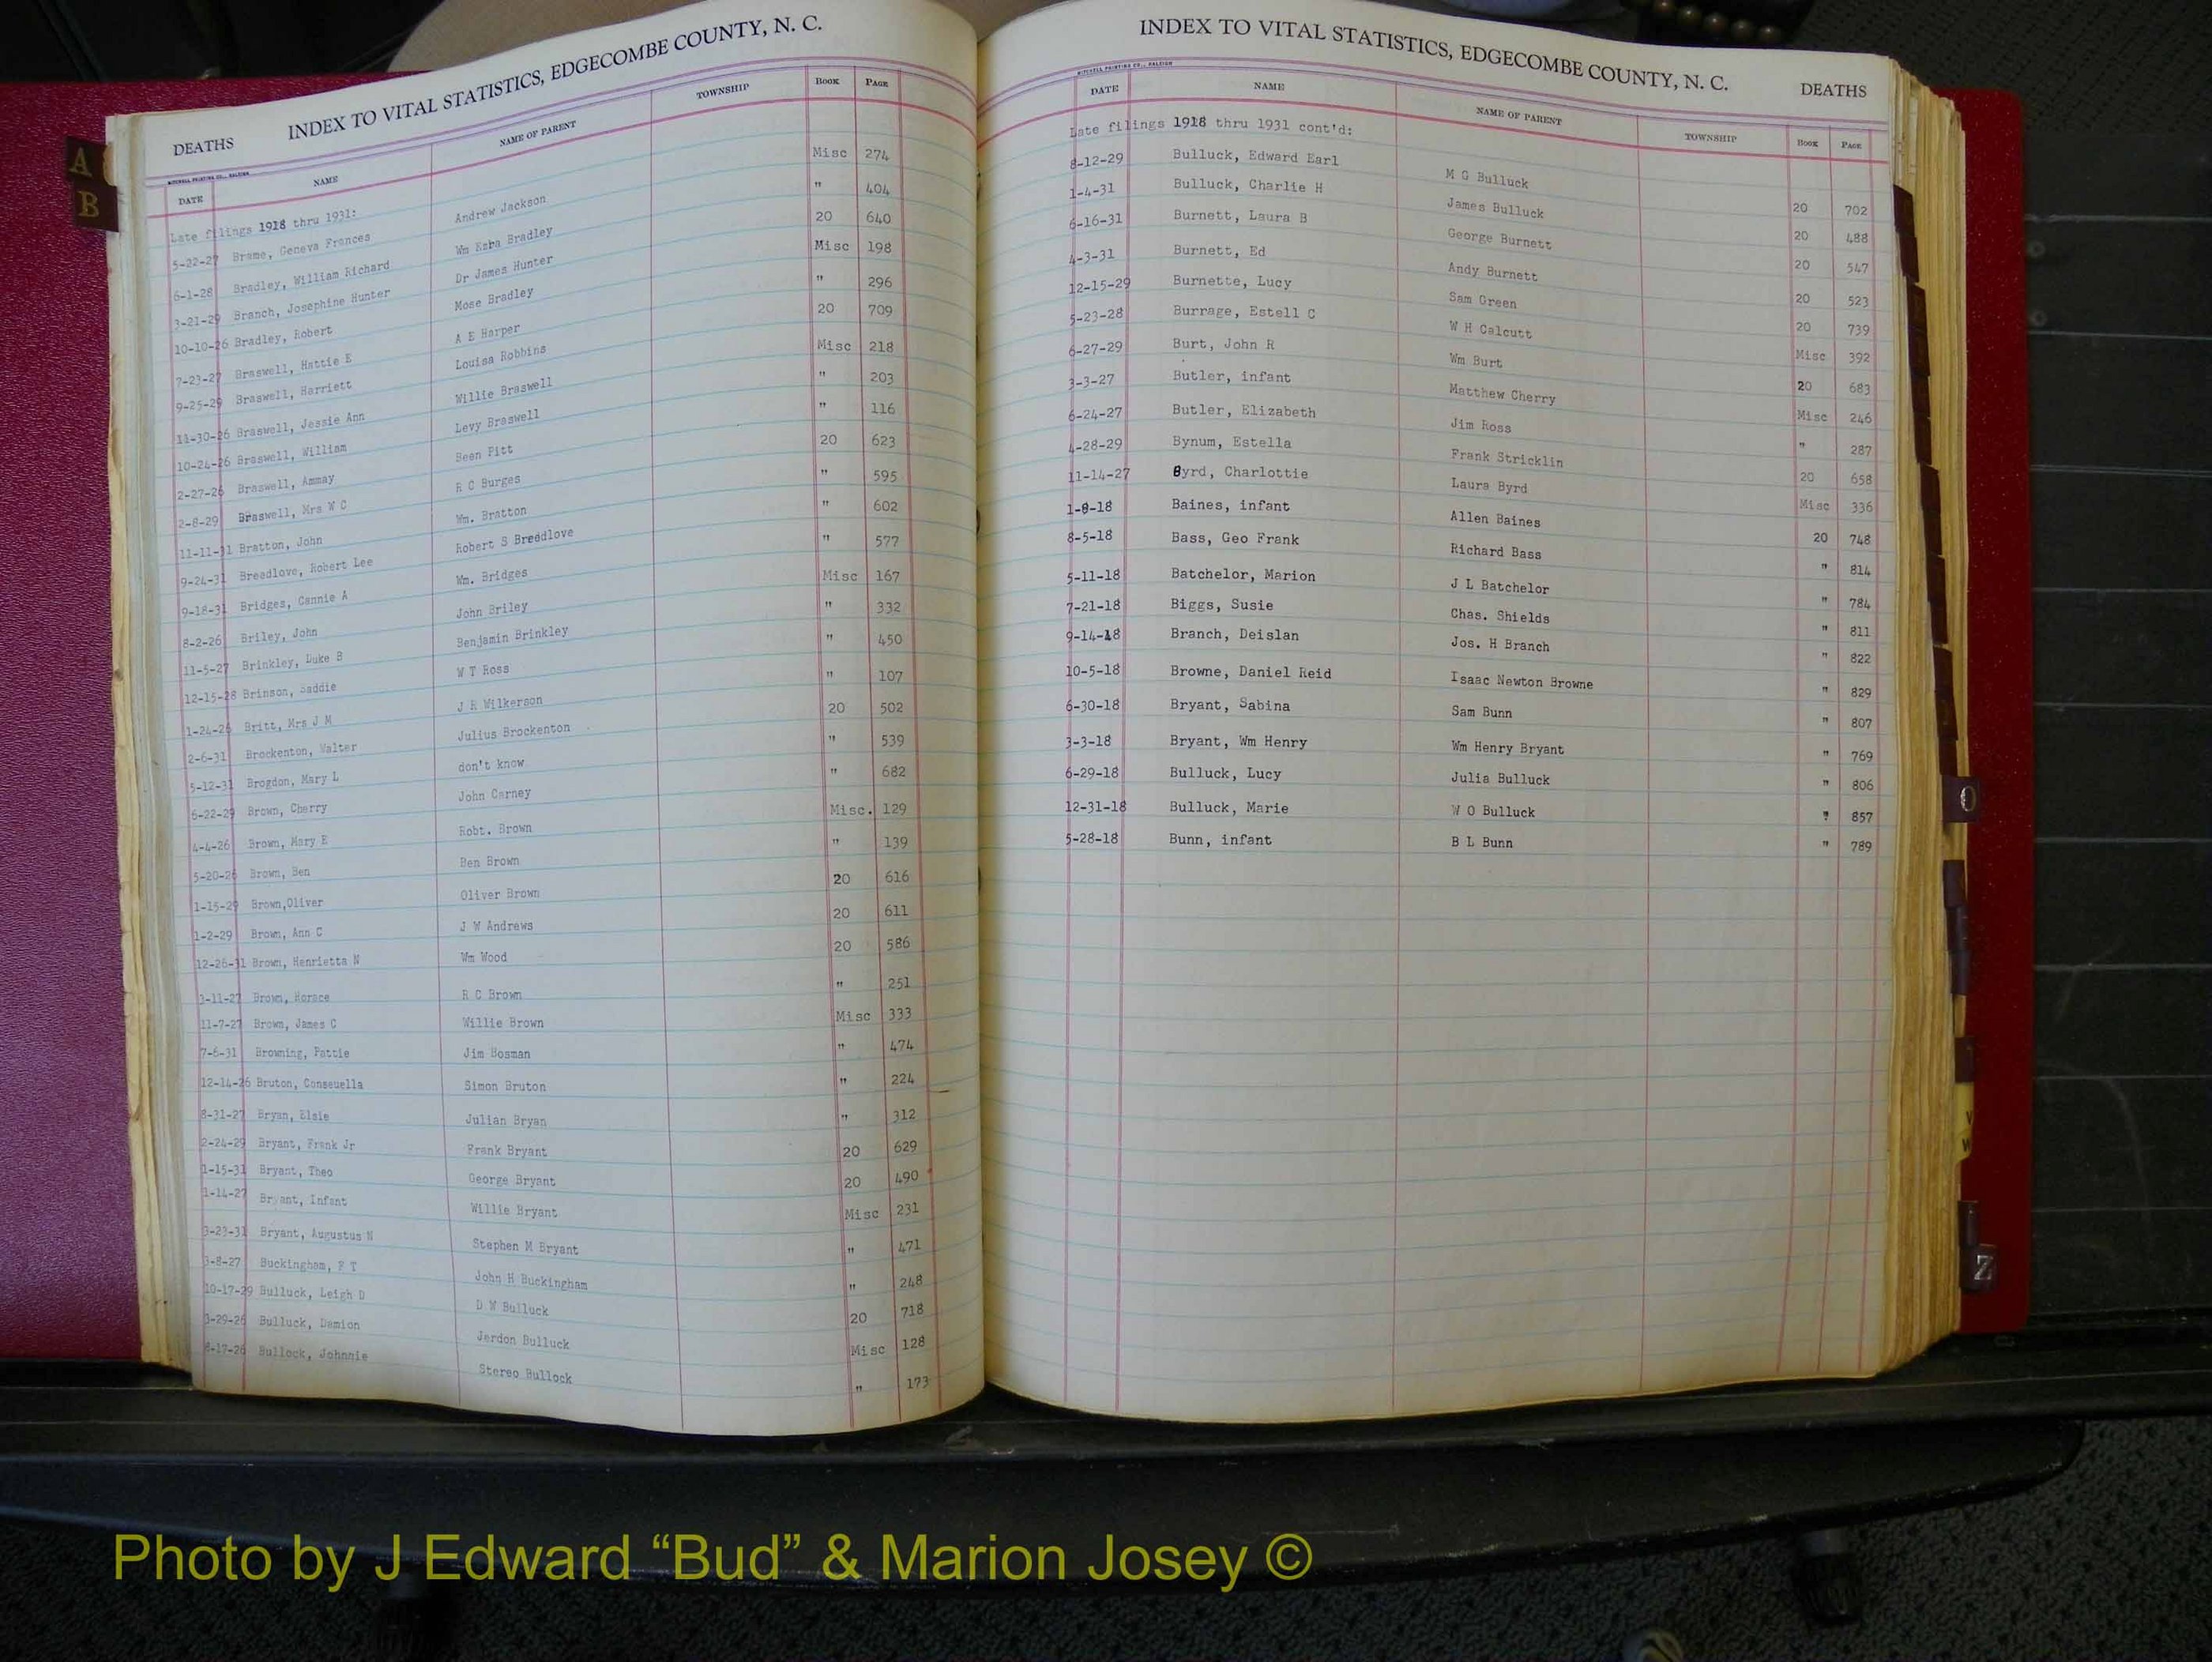 DEATHS INDEX TO VITAL STATISTICS, EDGECOMBE COUNTY, N. C.
MITCHELL PRINTING CO., RALEIGH
DATE NAME NAME OF PARENT TOWNSHIP BOOK PAGE
Late filings 1918 thru 1931:
5-22-27 Brame, Geneva Frances Andrew Jackson Misc 274
6-1-28 Bradley, William Richard Wm Ezba Bradley " 404
3-21-29 Branch, Josephine Hunter Dr James Hunter 20 640
10-10-26 Bradley, Robert Mose Bradley Misc 198
7-23-27 Braswell, Hattie E A E Harper " 296
9-25-29 Braswell, Harriett Louisa Robbins 20 709
11-30-26 Braswell, Jessie Ann Willie Braswell Misc 218
10-24-26 Braswell, William Levy Braswell " 203
2-27-26 Braswell, Ammay Seen Pitt " 116
2-8-29 Braswell, Mrs W C R C Burges 20 623
11-11-31 Bratton, John Wm. Bratton " 595
9-24-31 Breedlove, Robert Lee Robert S Breedlove " 602
9-18-31 Bridges, Cannie A Wm. Bridges " 577
8-2-26 Briley, John John Briley Misc 167
11-5-27 Brinkley, Duke B Benjamin Brinkley " 332
12-15-28 Brinson, Saddie W T Ross " 450
1-24-26 Britt, Mrs J M J R Wilkerson " 107
2-6-31 Brockenton, Walter Julius Brockenton 20 502
5-12-31 Brogdon, Mary L don't know " 539
6-22-29 Brown, Cherry John Carney " 682
4-4-26 Brown, Mary E Robt. Brown Misc. 129
5-20-26 Brown, Ben Ben Brown " 139
1-15-29 Brown,Oliver Oliver Brown 20 616
1-2-29 Brown, Ann C J W Andrews 20 611
12-26-31 Brown, Henrietta N Wm Wood 20 586
3-11-27 Brown, Horace R C Brown " 251
11-7-27 Brown, James C Willie Brown Misc 333
7-6-31 Browning, Pattie Jim Bosman " 474
12-14-26 Bruton, Conseuella Simon Bruton " 224
8-31-27 Bryan, Elsie Julian Bryan " 312
2-24-29 Bryant, Frank Jr Frank Bryant 20 629
1-15-31 Bryant, Theo George Bryant 20 490
1-14-27 Bryant, Infant Willie Bryant Misc 231
3-23-31 Bryant, Augustus N Stephen M Bryant " 471
3-8-27 Buckingham, F T John H Buckingham " 248
10-17-29 Bulluck, Leigh D D W Bulluck 20 718
3-29-26 Bulluck, Damion Jerdon Bulluck Misc 128
8-17-26 Bullock, Johnnie Stereo Bullock " 173
INDEX TO VITAL STATISTICS, EDGECOMBE COUNTY, N. C. DEATHS
MITCHELL PRINTING CO., RALEIGH
DATE NAME NAME OF PARENT TOWNSHIP BOOK PAGE
Late filings 1918 thru 1931 cont'd:
8-12-29 Bulluck, Edward Earl M G Bulluck 20 702
1-4-31 Bulluck, Charlie H James Bulluck 20 488
6-16-31 Burnett, Laura B George Burnett 20 547
4-3-31 Burnett, Ed Andy Burnett 20 523
12-15-29 Burnette, Lucy Sam Green 20 739
5-23-28 Burrage, Estell C W H Calcutt Misc 392
6-27-29 Burt, John R Wm Burt 20 683
3-3-27 Butler, infant Matthew Cherry Misc 246
6-24-27 Butler, Elizabeth Jim Ross " 287
4-28-29 Bynum, Estella Frank Stricklin 20 658
11-14-27 Byrd, Charlottie Laura Byrd Misc 336
1-8-18 Baines, infant Allen Baines 20 748
8-5-18 Bass, Geo Frank Richard Bass " 814
5-11-18 Batchelor, Marion J L Batchelor " 784
7-21-18 Biggs, Susie Chas. Shields " 811
9-14-18 Branch, Deislan Jos. H Branch " 822
10-5-18 Browne, Daniel Reid Isaac Newton Browne " 829
6-30-18 Bryant, Sabina Sam Bunn " 807
3-3-18 Bryant, Wm Henry Wm Henry Bryant " 769
6-29-18 Bulluck, Lucy Julia Bulluck " 806
12-31-18 Bulluck, Marie W O Bulluck " 857
5-28-18 Bunn, infant B L Bunn " 789
A
B
O
V
W
Z
Photo by J Edward “Bud” & Marion Josey ©